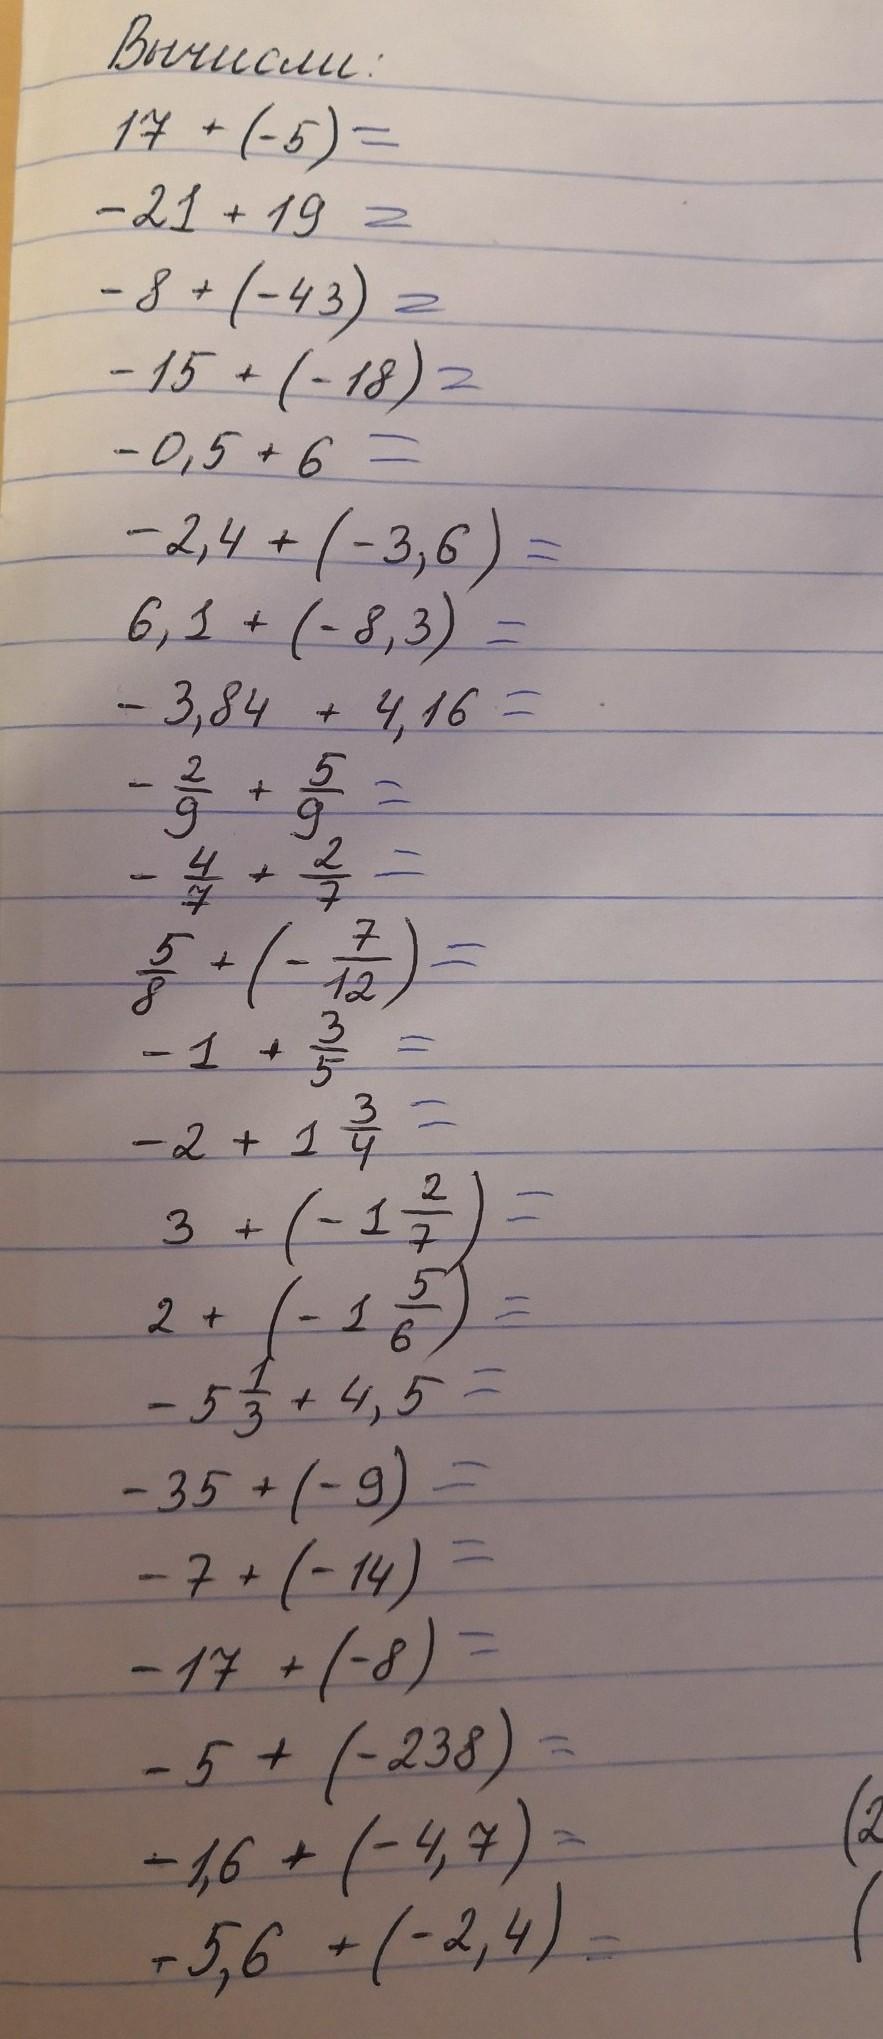 Вычисли:
17 + (-5) =
-21 + 19 =
-8 + (-43) =
-15 + (-18) =
-0,5 + 6 =
-2,4 + (-3,6) =
6,1 + (-8,3) =
-3,84 + 4,16 =
-2/9 + 5/9 =
-4/7 + 2/7 =
5/8 + (-7/12) =
-1 + 3/5 =
-2 + 1 3/4 =
3 + (-1 2/7) =
2 + (-1 5/6) =
-5 1/3 + 4,5 =
-35 + (-9) =
-7 + (-14) =
-17 + (-8) =
-5 + (-238) =
-1,6 + (-4,7) =
(2
-5,6 + (-2,4) =
(